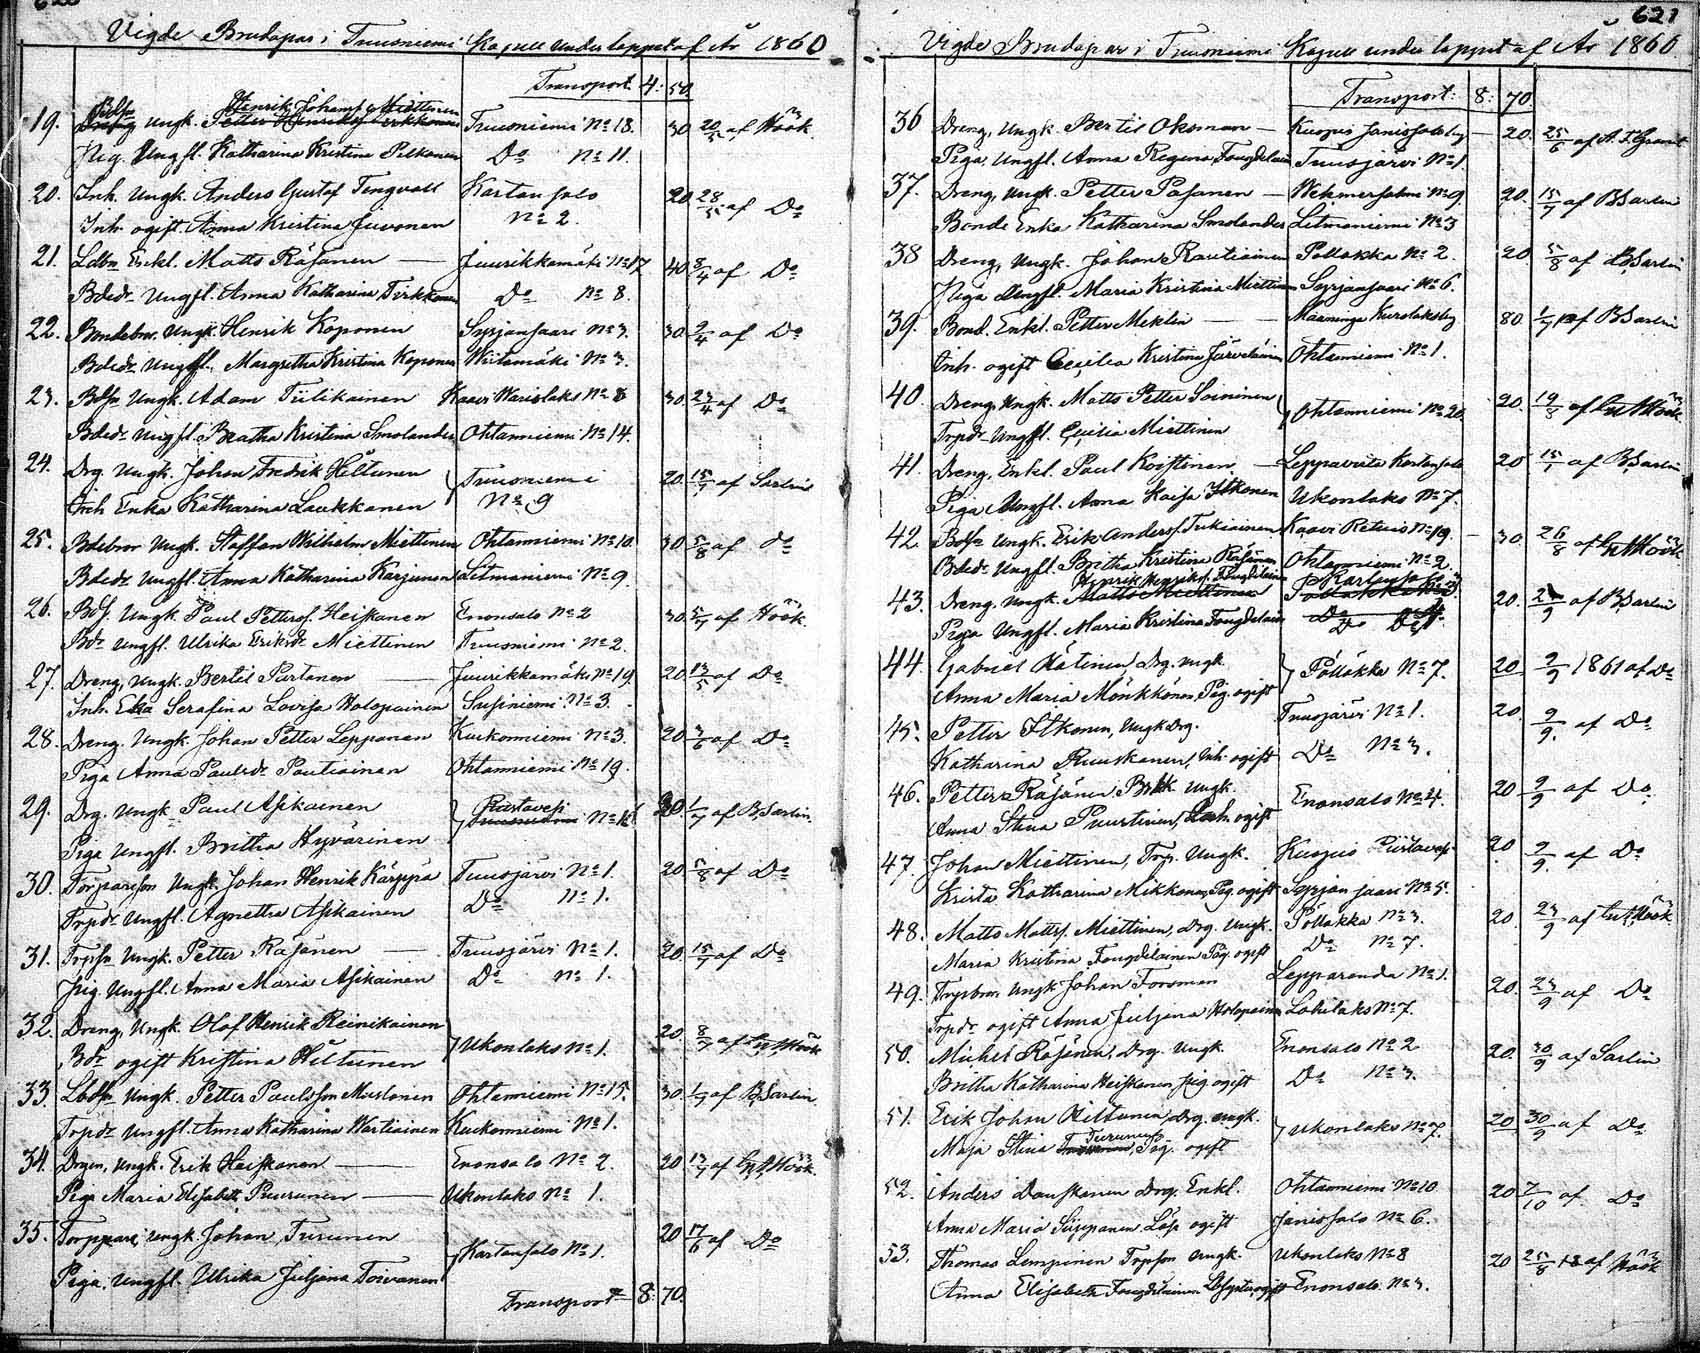 Vigde Brudapar i Tuusniemi Kapell under loppet af År 1860
Transport 4: 50.
19. Bdsn Ungk. Henrik Johans. Miettinen Tuusniemi No 18. 30 20/5 af Höök.
Pig. Ungfl. Katharina Kristina Pelkonen Do No 11.
20. Inh. Ungk. Anders Gustaf Tengvall Kartansalo 20 28/5 af Do
Inh. ogift. Anna Kristina Juvonen No 2.
21. Ldbn Enkl. Matts Räsänen — Juurikkamäki No 17 40 8/4 af Do
Bdedr Ungfl. Anna Katharina Tirkkonen Do No 8.
22. Bondebror Ungk. Henrik Koponen Syrjänsaari No 3. 30. 9/4 af Do
Bdedr Ungfl. Margretha Kristina Koponen Wiitamäki No 3.
23. Bdsn Ungk. Adam Tiilikainen Kaavi Warislaks No 8 30. 23/4 af Do
Bdedr Ungfl. Beatha Kristina Smolander Ohtanniemi No 14.
24. Drg. Ungk. Johan Fredrik Hiltunen Tuusniemi 20. 15/7 af Sarlin
Inh Enka Katharina Laukkanen No 9
25. Bdebror Ungk. Staffan Wilhelm Miettinen Ohtanniemi No 10. 30 5/8 af do
Bdedr Ungfl. Anna Katharina Karjunen Litmaniemi No 9.
26. Bds. Ungk. Paul Petters. Heiskanen Enonsalo No 2 30. 5/7 af Höök.
Bdr Ungfl. Ulrika Eriksdr Miettinen Tuusniemi No 2.
27. Dreng, Ungk. Bertil Partanen — Juurikkamäki No 19 20. 13/5 af Do
Inh. Eka Serafina Lovisa Holopainen Susiniemi No 3.
28. Dreng. Ungk. Johan Petter Lepponen Kiukonniemi No 3. 20. 3/6 af Do
Piga Anna Paulsdr Pautiainen Ohtanniemi No 19.
29. Drg. Ungk. Paul Asikainen Riistavesi No 16 20. 1/7 af B. Sarlin.
Piga Ungfl. Britha Hyvärinen
30. Torparson Ungk. Johan Henrik Käyppä Tuusjärvi No 1. 20. 5/8 af Do
Trpdr Ungfl. Agnetha Asikainen Do No 1.
31. Trpsn Ungk. Petter Räsänen — Tuusjärvi No 1. 20. 15/7 af Do
Pig. Ungfl. Anna Maria Asikainen Do No 1.
32. Dreng, Ungk. Olof Henrik Reinikainen Ukonlaks No 1. 20 8/7 af Höök
Bdr ogift Kristina Hiltunen
33. Lbdsn Ungk. Petter Paulsson Mustonen Ohtanniemi No 15. 30. 1/7 af B. Sarlin.
Trpdr Ungfl. Anna Katharina Wartiainen Kiukonniemi No 1.
34. Dregen, Ungk. Erik Heiskanen — Enonsalo No 2. 20 13/7 af Höök.
Piga Maria Elisabeth Puurunen — Ukonlaks No 1.
35. Torppare, Ungk. Johan Turunen Kartansalo No 1. 20 17/6 af Do
Piga Ungfl. Ulrika Juljana Toivanen
Transport 8: 70.
621
Vigde Brudapar i Tuusniemi Kapell under loppet af År 1860
Transport: 8: 70.
36 Dreng, Ungk. Bertil Oksman — Kuopio Janissaloby 20. 25/6 af A. F. Granit
Piga, Ungfl. Anna Regina Fougdelain Tuusjärvi No 1
37. Dreng, Ungk. Petter Pasanen — Wehmersalmi No 9 20. 15/7 af B. Sarlin
Bonde Enka Katharina Smolander Litmaniemi No 3
38 Dreng, Ungk. Johan Rautiainen Pöllakka No 2. 20. 5/8 af B. Sarlin
Piga Ungfl. Maria Kristina Miettinen Syrjänsaari No 6.
39. Bond. Enkl. Petter Meklin — Maaninga Kurolaksby 80. 1/7 af B. Sarlin
Inh. ogift Cecilia Kristina Järveläinen Ohtanniemi No 1.
40. Dreng, Ungk. Matts Petter Soininen Ohtanniemi No 20. 20. 19/8 af Höök
Trpdr Ungfl. Cecilia Miettinen
41. Dreng, Enkl. Paul Koistinen — Leppävirta Kartansalo 20 15/ af B. Sarlin
Piga Ungfl. Anna Kaisa Itkonen Ukonlaks No 7.
42. Bdsn Ungk. Erik Anders. Tukiainen Kaavi Retuis No 19. 30. 26/8 af Höök
Bdedr Ungfl. Britha Kristina Räsänen Ohtanniemi No 2.
43. Dreng, Ungk. Henrik Henriks. Fougdelain Kartansalo No 3. 20. 2/9 af B. Sarlin
Piga Ungfl. Maria Kristina Fougdelain Do Do
44. Gabriel Hätinen, Drg. ungk. Pöllakka No 7. 20 9/9 1861 af Do
Anna Maria Mönkkönen, Pig. ogift
45. Petter Itkonen, Ungk Drg. Tuusjärvi No 1. 20. 9/9. af Do
Katharina Ruuskanen, Inh. ogift Do No 3.
46. Petter Räsänen Bekk ungk. Enonsalo No 4. 20 9/9 af Do
Anna Stina Puurtinen, Inh. ogift
47. Johan Miettinen, Trp. Ungk. Kuopio Riistaves 20 9/9. af Do
Krista Katharina Mikkonen, Pig. ogift Syrjänsaari No 5.
48. Matts Matts. Miettinen, Drg. Ungk. Pöllakka No 3. 20 23/9 af Höök
Maria Kristina Fougdelainen Pig. ogift Do No 7.
49. Trpsbror Ungk Johan Forsman Lepparanda No 1. 20. 23/9 af Do
Trpdr ogift Anna Juljana Holopainen Lohilaks No 7.
50. Michel Räsänen, Drg. Ungk. Enonsalo No 2 20. 30/9 af Sarlin
Britha Katharina Heiskanen pig ogift Do No 3.
51. Erik Johan Hiltunen drg. ungk. Ukonlaks No 7. 20 30/9 af Do
Maja Stina Turunen, Pig. ogift
52. Anders Danskanen Drg. Enkl. Ohtanniemi No 10 20 7/10 af Do
Anna Maria Siseppanen Lösp ogift Janissalo No 6.
53. Thomas Lempinen Trpson ungk. Ukonlaks No 8 20 25/8 af Höök
Anna Elisabeth Fougdelainen ogift Enonsalo No 3.